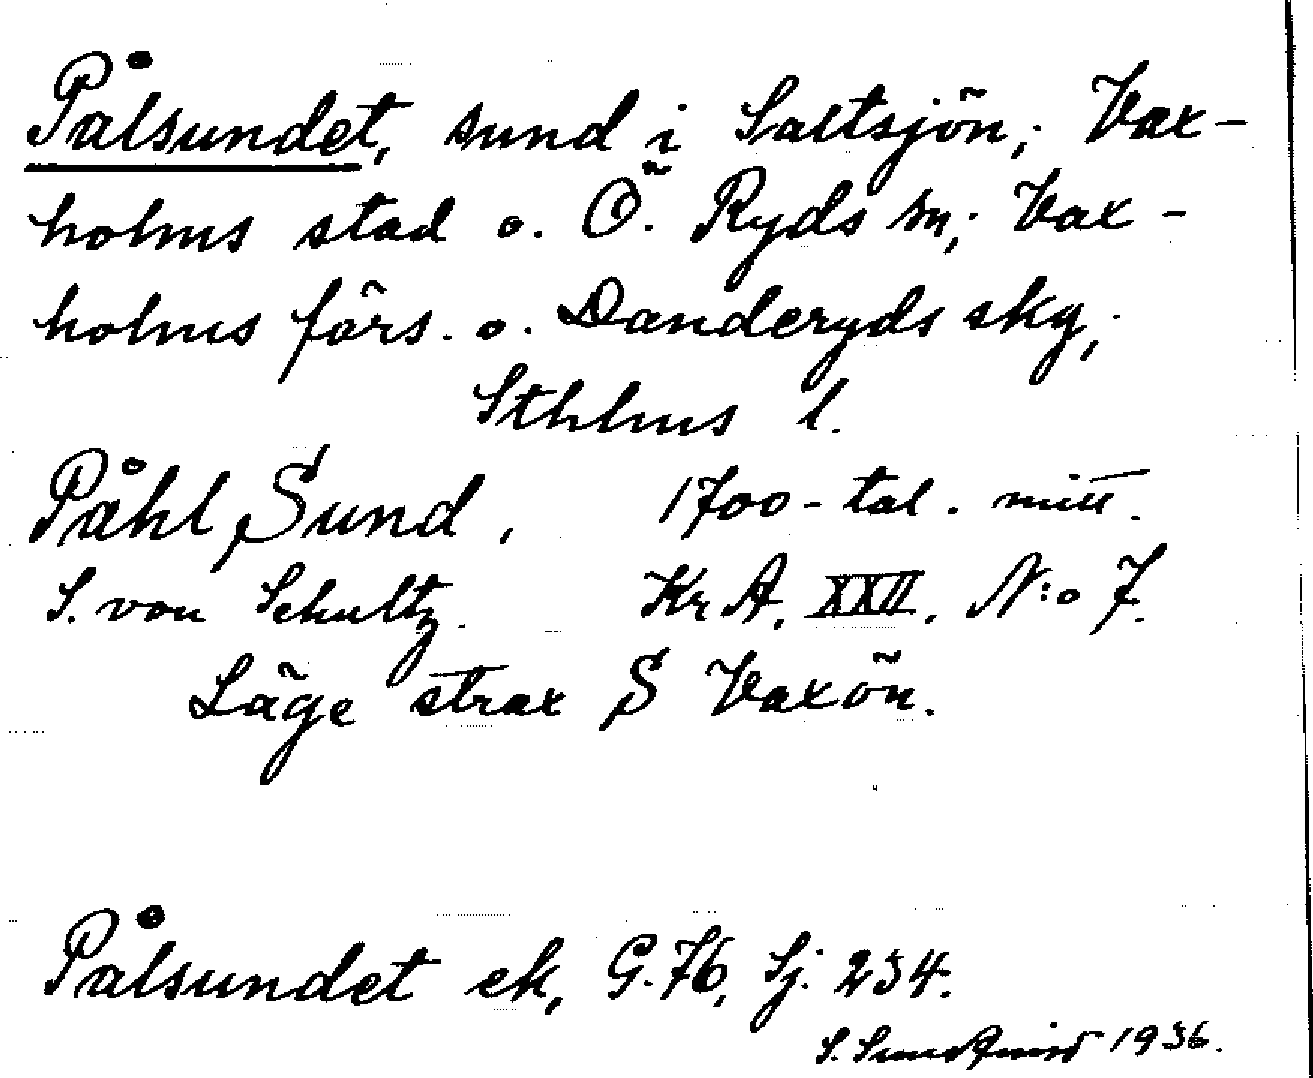 Pålsundet, sund i Saltsjön; Vax-
holms stad o. Ö. Ryds sn; Vax-
holms förs. o. Danderyds skg,;
Sthlms l.
Påhl Sund, 1700-tal. mitt.
S. von Schultz. Kr A. XXII. N:o 7.
Läge strax S Vaxön.
Pålsundet ek, G.76, Sj. 234.
S. Sundqvist 1936.